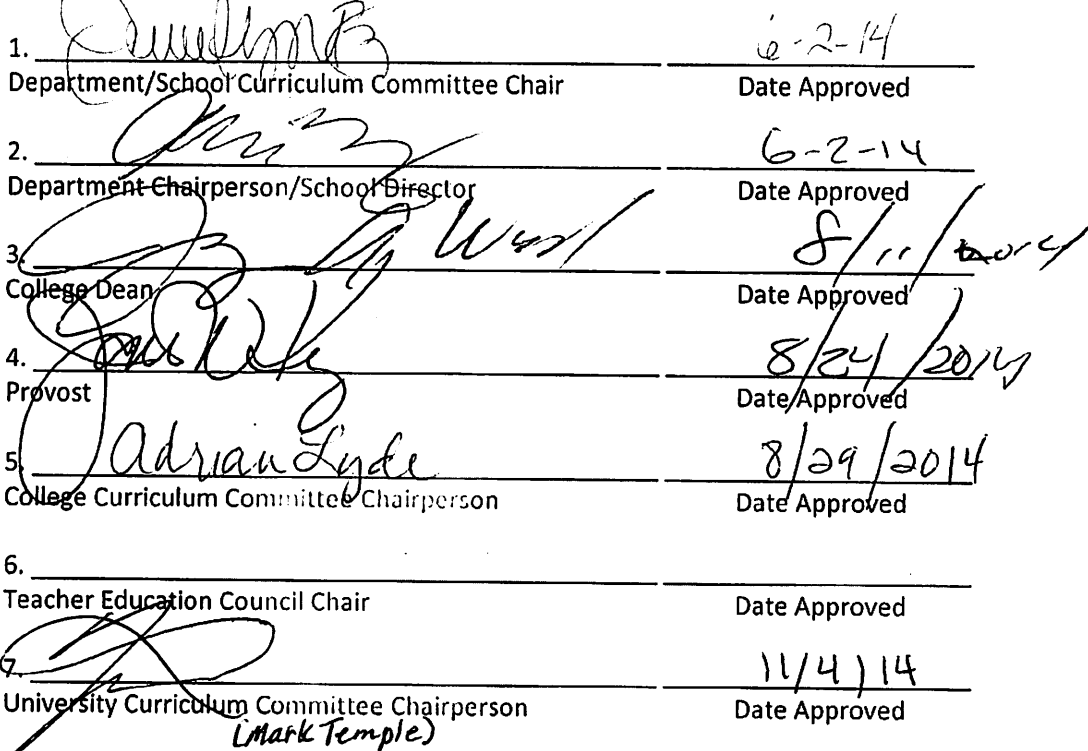 1. 6-2-14
Department/School Curriculum Committee Chair Date Approved
2. 6-2-14
Department Chairperson/School Director Date Approved
3. 8/11/
College Dean Date Approved
4. 8/24/2014
Provost Date Approved
5. Adrian Lyde 8/29/2014
College Curriculum Committee Chairperson Date Approved
6.
Teacher Education Council Chair Date Approved
7. 11/4/14
University Curriculum Committee Chairperson Date Approved
(Mark Temple)